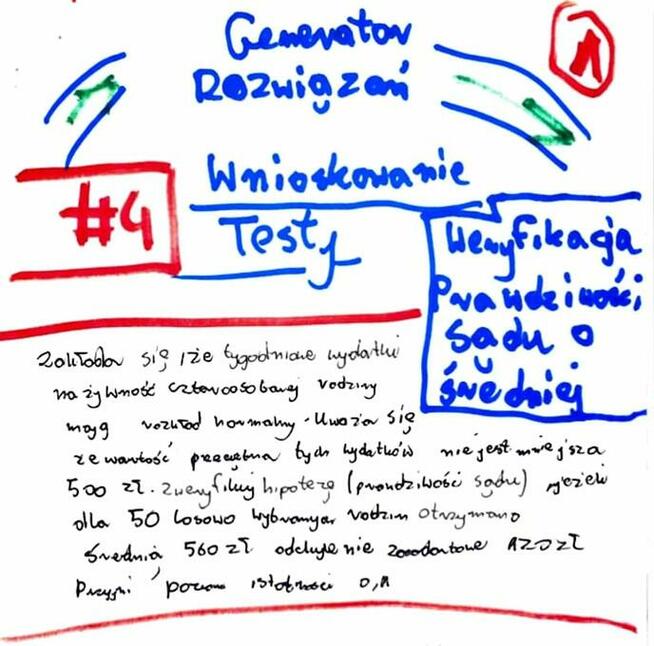 Generator
Rozwiązań
1
#4
Wnioskowanie
Testy
Weryfikacja
Prawdziwości
Sądu o
średniej
zakłada się, że tygodniowe wydatki
na żywność czteroosobowej rodziny
mają rozkład normalny. Uważa się
że wartość przeciętna tych wydatków nie jest mniejsza
500 zł. Zweryfikuj hipotezę (prawdziwości sądu) jeżeli
dla 50 losowo wybranych rodzin otrzymano
średnią 560 zł odchylenie 120 zł
Przyjmij poziom istotności 0,1